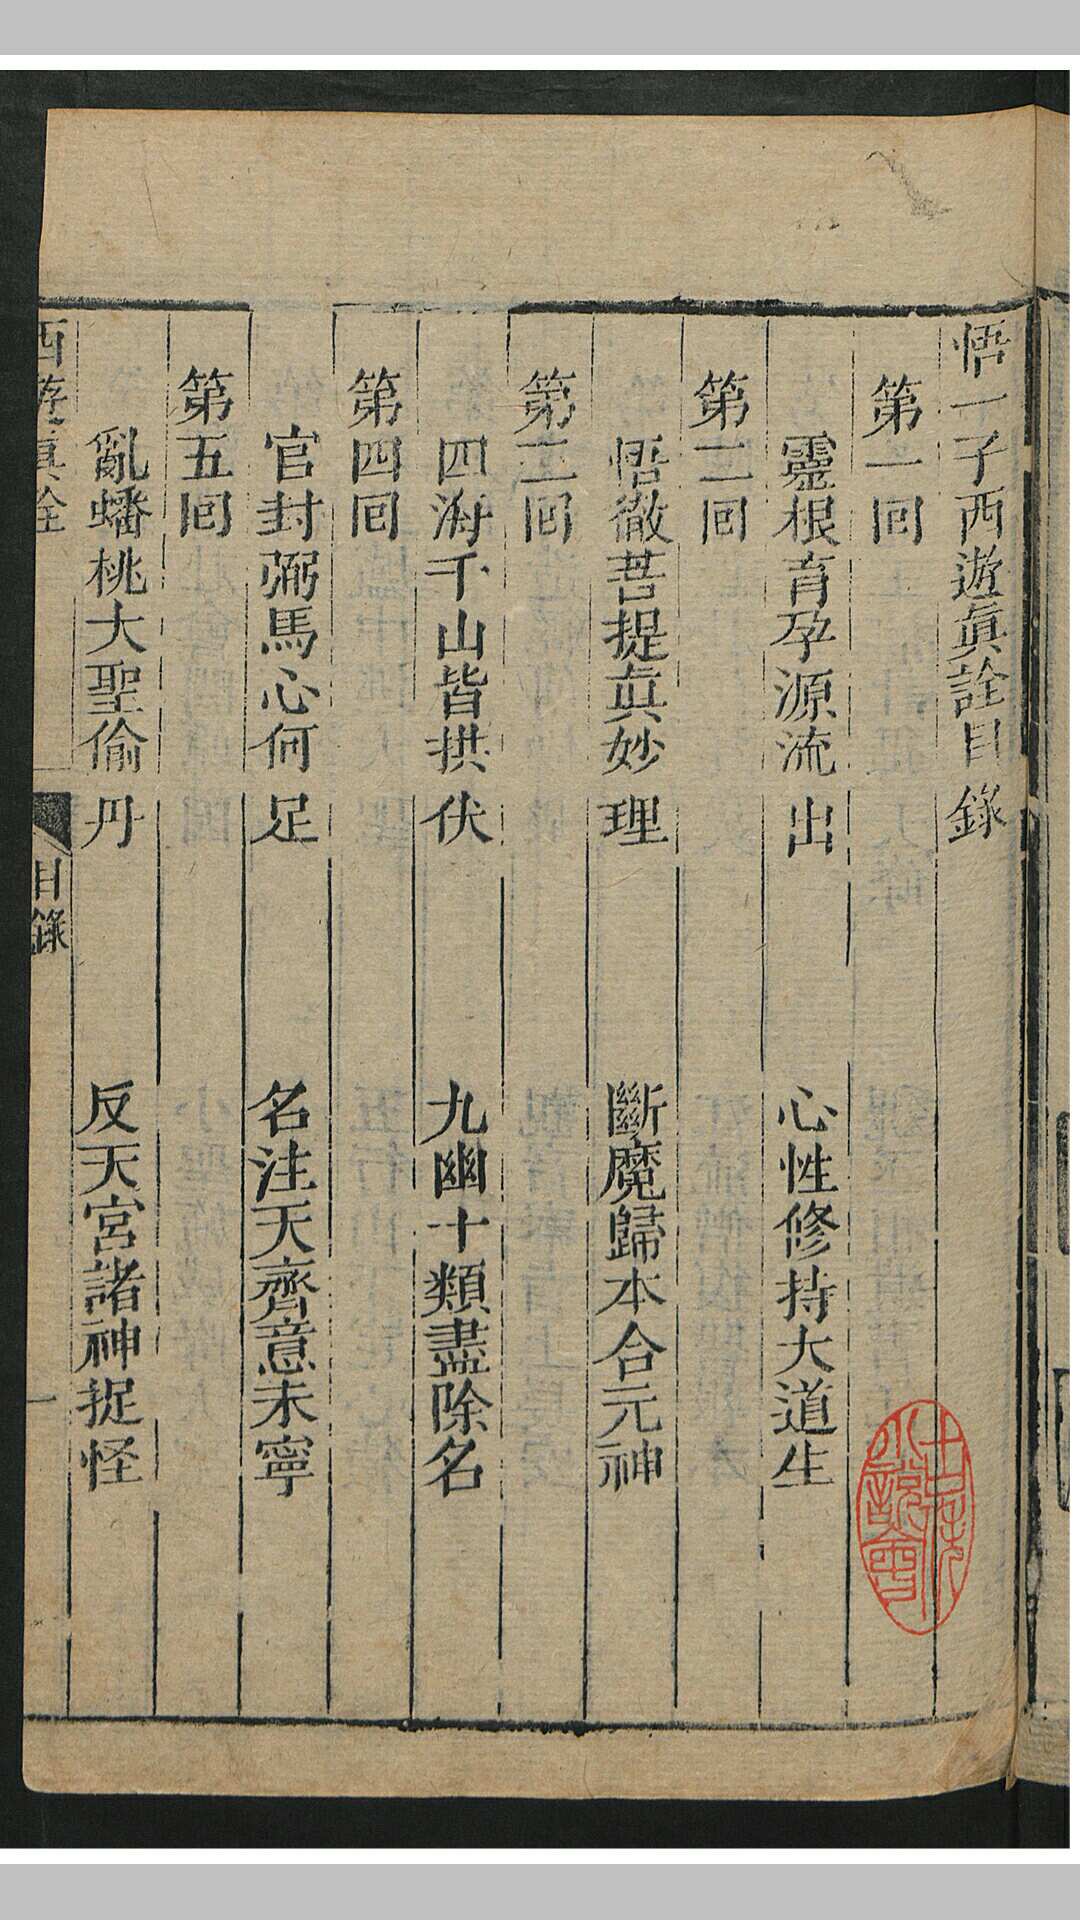 悟一子西遊眞詮目錄
第一回
靈根育孕源流出　心性修持大道生
第二回
悟徹菩提眞妙理　斷魔歸本合元神
第三回
四海千山皆拱伏　九幽十類盡除名
第四回
官封弼馬心何足　名注天齊意未寧
第五回
亂蟠桃大聖偷丹　反天宮諸神捉怪
西遊眞詮　目錄　一